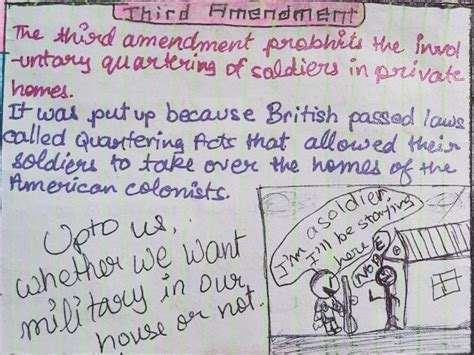 Third Amendment
The third amendment probhits the invol
-untary quartering of soldiers in private
homes.
It was put up because British passed laws
called Quartering Acts that allowed their
soldiers to take over the homes of the
American colonists.
Upto us,
whether we want
military in our
house or not.
I'm a soldier,
I'll be staying
here
NOPE